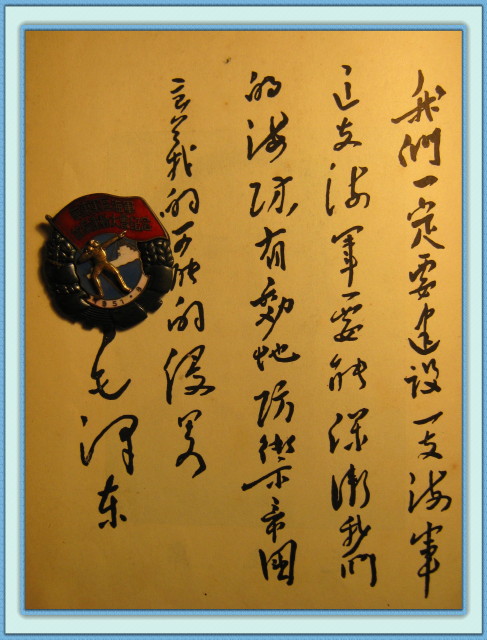 我們一定要建设一支海軍
这支海軍要能保衛我們
的海防有効地防禦帝國
主义的可能的侵畧
毛泽东
1951